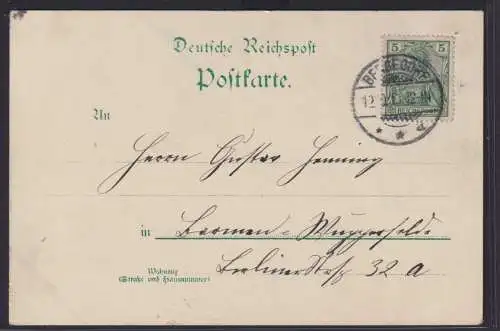 Deutsche Reichspost
Postkarte.
5 5
BERGEDORF
12
* * d
An
Herrn Gustav Henning
in Barmen-Wupperfeld
Wohnung
(Straße und Hausnummer)
Berliner Str. 32 a